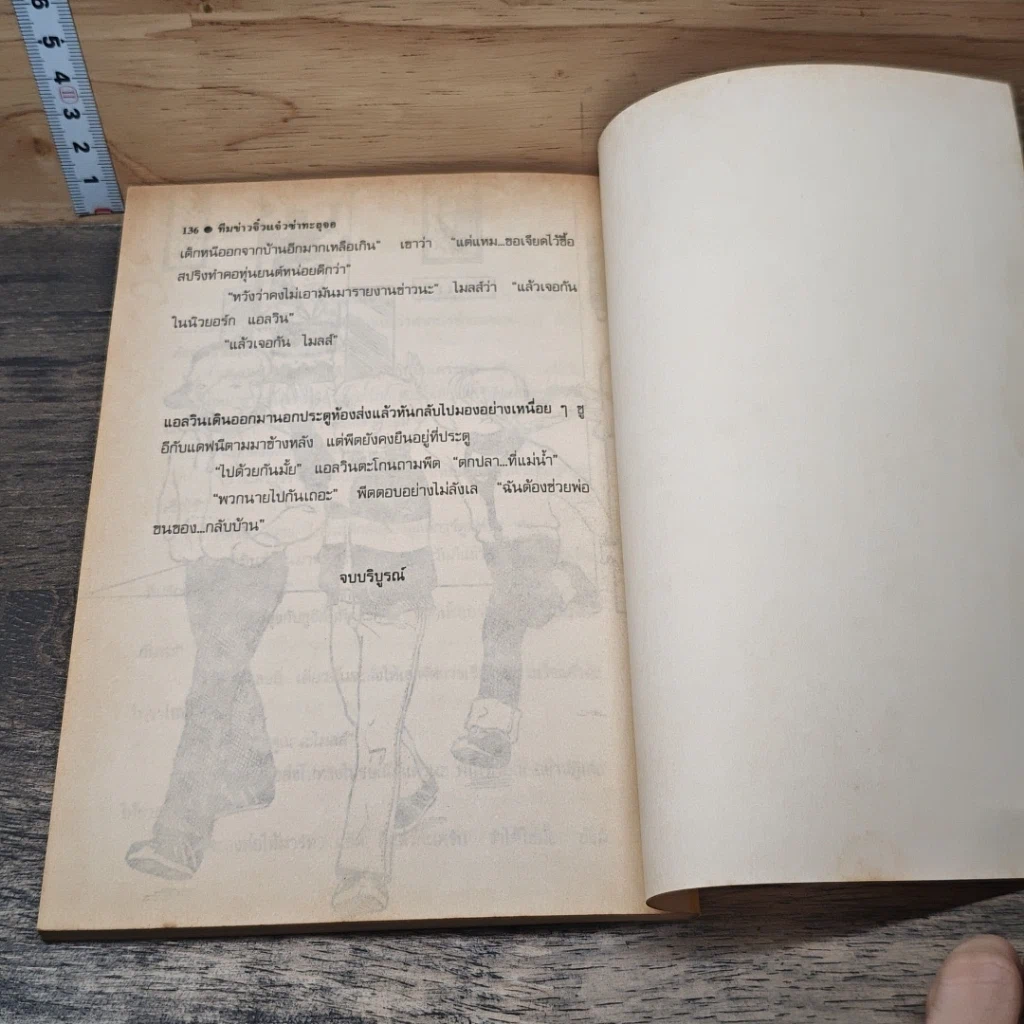 6
5
4
3
2
1
136 ● ทีมข่าวจิ๋วแจ๋วซ่าทะลุจอ
เด็กหนีออกจากบ้านอีกมากเหลือเกิน” เขาว่า “แต่แหม...ขอเจียดไว้ซื้อ
สปริงทำคอหุ่นยนต์หน่อยดีกว่า”
“หวังว่าคงไม่เอามันมารายงานข่าวนะ” ไมลส์ว่า “แล้วเจอกัน
ในนิวยอร์ก แอลวิน”
“แล้วเจอกัน ไมลส์”
แอลวินเดินออกมานอกประตูห้องส่งแล้วหันกลับไปมองอย่างเหนื่อย ๆ ซู
อีกับแดฟนีตามมาข้างหลัง แต่พีตยังคงยืนอยู่ที่ประตู
“ไปด้วยกันมั้ย” แอลวินตะโกนถามพีต “ตกปลา...ที่แม่น้ำ”
“พวกนายไปกันเถอะ” พีตตอบอย่างไม่ลังเล “ฉันต้องช่วยพ่อ
ขนของ...กลับบ้าน”
จบบริบูรณ์